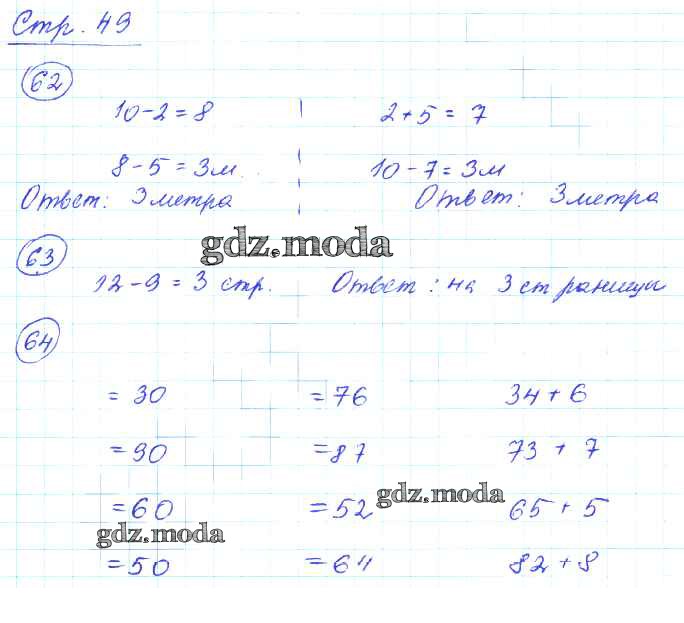 Стр. 49
62
10-2=8 | 2+5=7
8-5=3м. | 10-7=3м
Ответ: 3 метра Ответ: 3 метра
gdz.moda
63
12-9=3 стр. Ответ: на 3 страницы
64
=30 =76 34+6
=90 =87 73+7
=60 =52 65+5
gdz.moda
gdz.moda
=50 =64 82+8